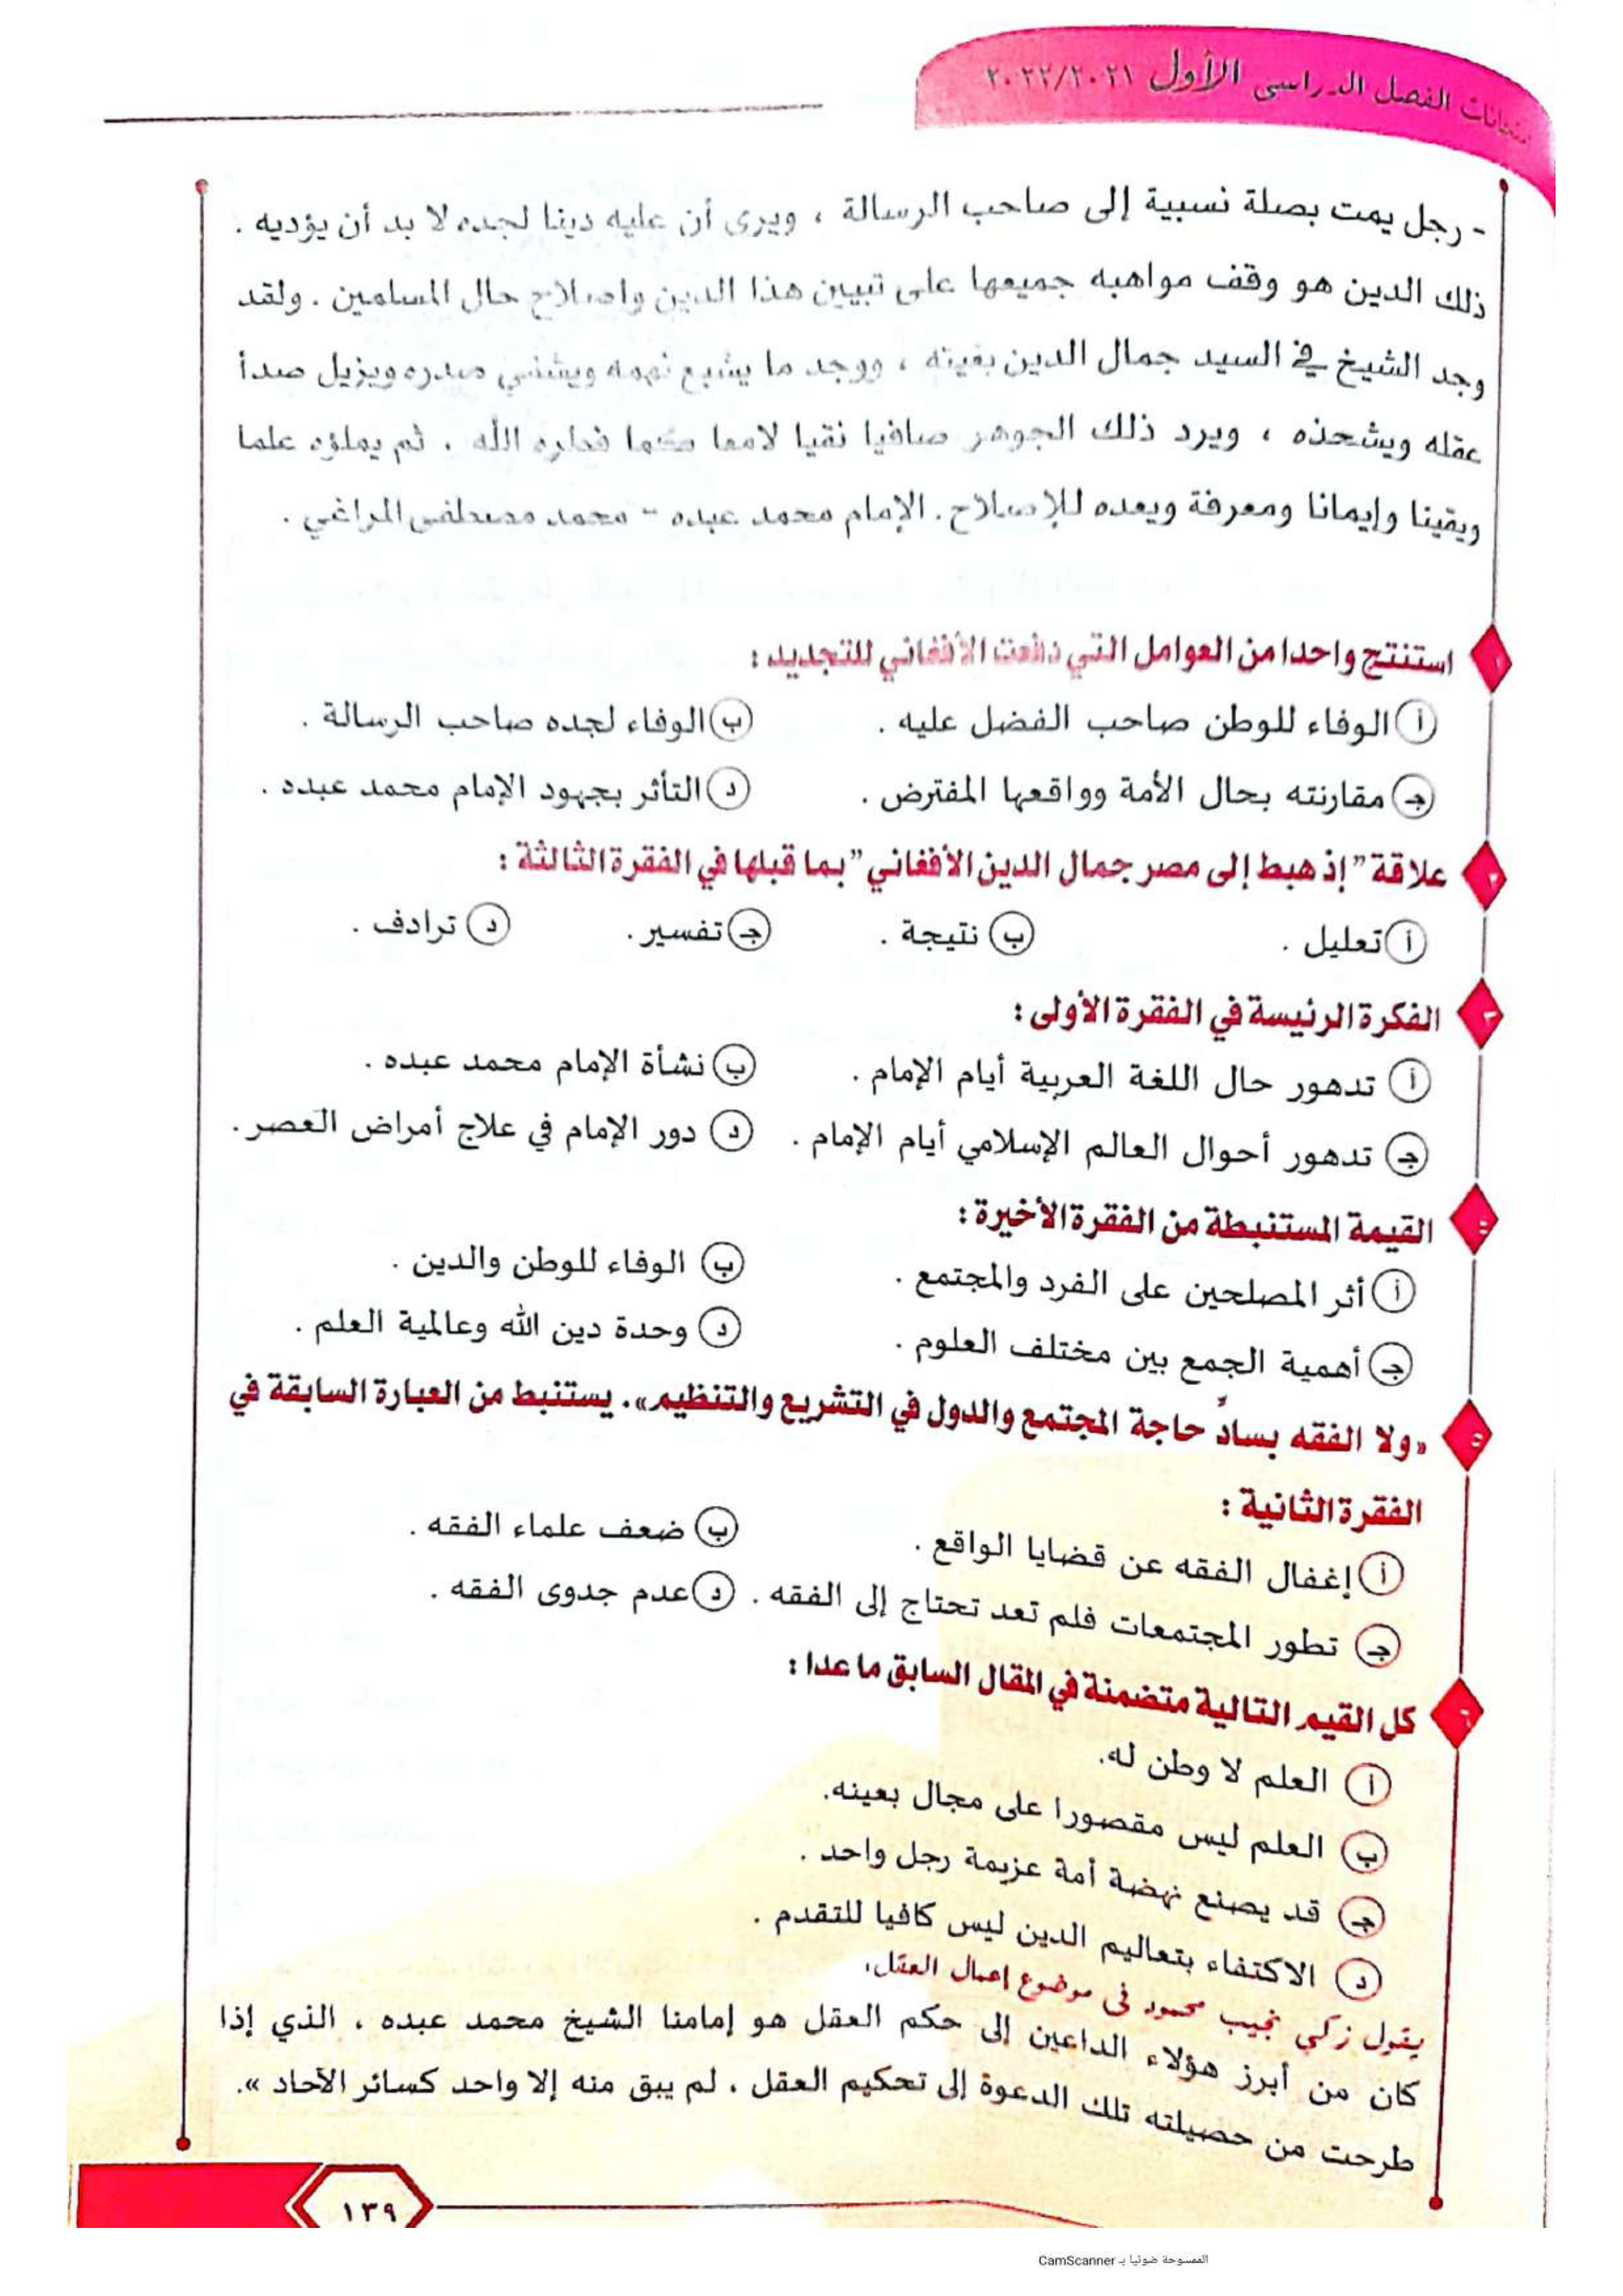 امتحانات الفصل الدراسى الأول ٢٠٢٢/٢٠٢١
- رجل يمت بصلة نسبية إلى صاحب الرسالة ، ويرى أن عليه دينا لجده لا بد أن يؤديه .
ذلك الدين هو وقف مواهبه جميعها على تبيين هذا الدين وإصلاح حال المسلمين . ولقد
وجد الشيخ في السيد جمال الدين بغيته ، ووجد ما يشبع نهمه ويشفي صدره ويزيل صدأ
عقله ويشحذه ، ويرد ذلك الجوهر صافيا نقيا لامعا كما فطره الله . ثم يملؤه علما
ويقينا وإيمانا ومعرفة ويعده للإصلاح. الإمام محمد عبده - محمد مصطفى المراغي .
١ استنتج واحدا من العوامل التي دفعت الأفغاني للتجديد :
أ الوفاء للوطن صاحب الفضل عليه . ب الوفاء لجده صاحب الرسالة .
جـ مقارنته بحال الأمة وواقعها المفترض . د التأثر بجهود الإمام محمد عبده .
٢ علاقة "إذ هبط إلى مصر جمال الدين الأفغاني" بما قبلها في الفقرة الثالثة :
أ تعليل . ب نتيجة . جـ تفسير . د ترادف .
٣ الفكرة الرئيسة في الفقرة الأولى :
أ تدهور حال اللغة العربية أيام الإمام . ب نشأة الإمام محمد عبده .
جـ تدهور أحوال العالم الإسلامي أيام الإمام . د دور الإمام في علاج أمراض العصر .
٤ القيمة المستنبطة من الفقرة الأخيرة :
أ أثر المصلحين على الفرد والمجتمع . ب الوفاء للوطن والدين .
جـ أهمية الجمع بين مختلف العلوم . د وحدة دين الله وعالمية العلم .
٥ «ولا الفقه بسادٍّ حاجة المجتمع والدول في التشريع والتنظيم». يستنبط من العبارة السابقة في
الفقرة الثانية :
أ إغفال الفقه عن قضايا الواقع . ب ضعف علماء الفقه .
جـ تطور المجتمعات فلم تعد تحتاج إلى الفقه . د عدم جدوى الفقه .
٦ كل القيم التالية متضمنة في المقال السابق ما عدا :
أ العلم لا وطن له.
ب العلم ليس مقصورا على مجال بعينه.
جـ قد يصنع نهضة أمة عزيمة رجل واحد .
د الاكتفاء بتعاليم الدين ليس كافيا للتقدم .
يقول زكي نجيب محمود فى موضوع إعمال العقل،
كان من أبرز هؤلاء الداعين إلى حكم العقل هو إمامنا الشيخ محمد عبده ، الذي إذا
طرحت من حصيلته تلك الدعوة إلى تحكيم العقل ، لم يبق منه إلا واحد كسائر الآحاد ».
١٣٩
الممسوحة ضوئيا بـ CamScanner